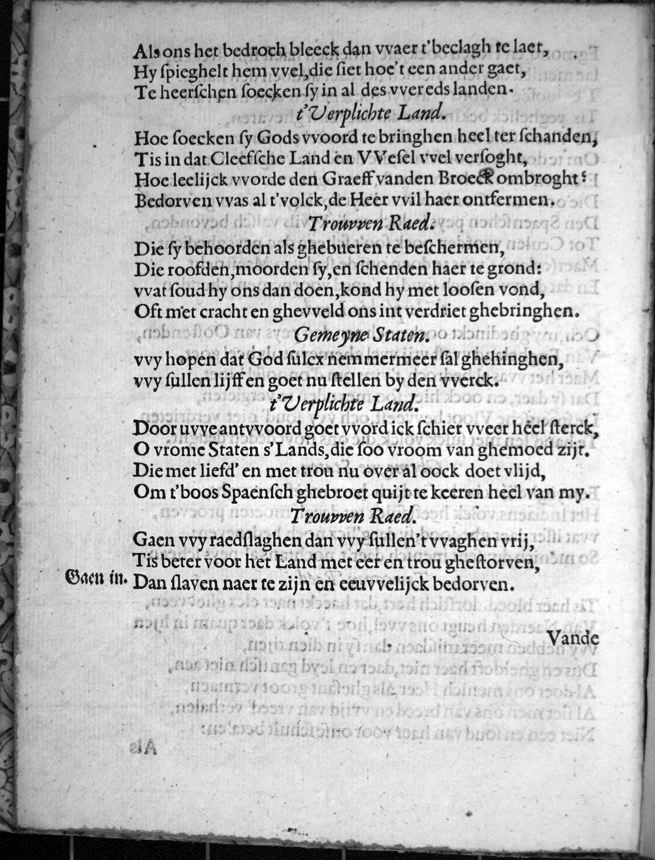 Als ons het bedroch bleeck dan vvaer t'beclagh te laet,
Hy spieghelt hem vvel, die siet hoe't een ander gaet,
Te heerschen soecken sy in al des vvereds landen.
t'Verplichte Land.
Hoe soecken sy Gods vvoord te bringhen heel ter schanden,
Tis in dat Cleefsche Land en VVesel vvel versoght,
Hoe leelijck vvorde den Graeff vanden Broeck ombroght?
Bedorven vvas al t'volck, de Heer vvil haer ontfermen.
Trouvven Raed.
Die sy behoorden als ghebueren te beschermen,
Die roofden, moorden sy, en schenden haer te grond:
vvat soud hy ons dan doen, kond hy met loosen vond,
Oft met cracht en ghevveld ons int verdriet ghebringhen.
Gemeyne Staten.
vvy hopen dat God sulcx nemmermeer sal ghehinghen,
vvy sullen lijff en goet nu stellen by den vverck.
t'Verplichte Land.
Door uvve antvvoord goet vvord ick schier vveer heel sterck,
O vrome Staten s'Lands, die soo vroom van ghemoed zijt.
Die met liefd' en met trou nu over al oock doet vlijd,
Om t'boos Spaensch ghebroet quijt te keeren heel van my.
Trouvven Raed.
Gaen vvy raedslaghen dan vvy sullen't vvaghen vrij,
Tis beter voor het Land met eer en trou ghestorven,
Gaen in. Dan slaven naer te zijn en eeuvvelijck bedorven.
Vande